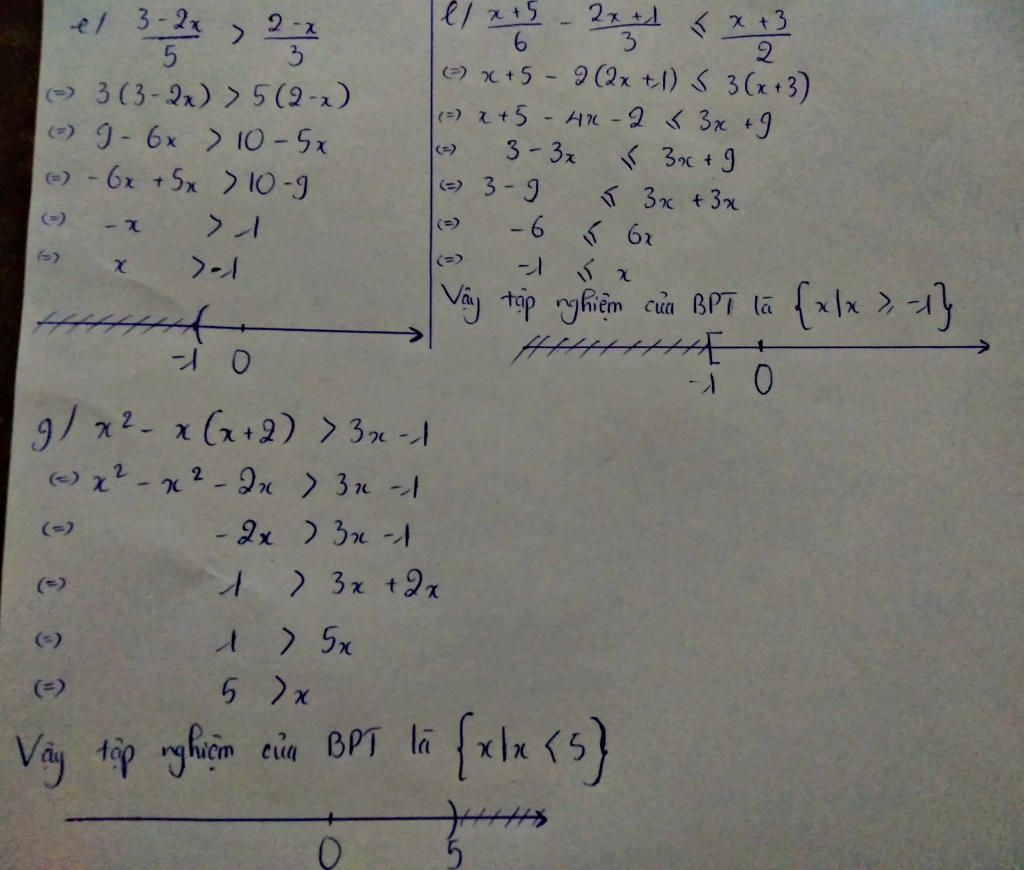 e/ (3-2x)/5 > (2-x)/3
(=) 3(3-2x) > 5(2-x)
(=) 9 - 6x > 10 - 5x
(=) -6x + 5x > 10-9
(=) -x > 1
(=) x > -1
-1 0
l/ (x+5)/6 - (2x+1)/3 ⩽ (x+3)/2
(=) x+5 - 2(2x+1) ⩽ 3(x+3)
(=) x+5 - 4x - 2 ⩽ 3x + 9
(=) 3 - 3x ⩽ 3x + 9
(=) 3 - 9 ⩽ 3x + 3x
(=) -6 ⩽ 6x
(=) -1 ⩽ x
Vậy tập nghiệm của BPT là {x|x ⩾ -1}
-1 0
g/ x² - x(x+2) > 3x - 1
(=) x² - x² - 2x > 3x - 1
(=) -2x > 3x - 1
(=) 1 > 3x + 2x
(=) 1 > 5x
(=) 5 > x
Vậy tập nghiệm của BPT là {x|x < 5}
0 5